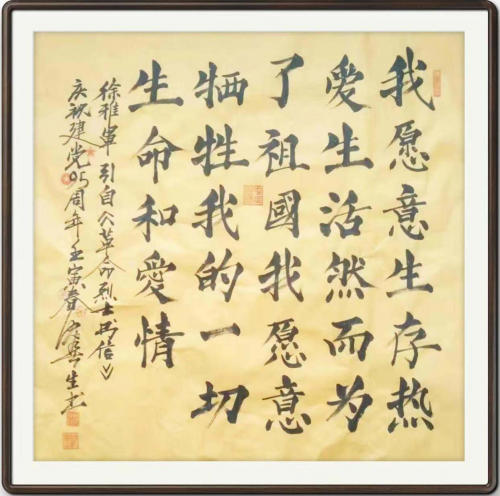 我愿意生存热
愛生活然而为
了祖國我愿意
牺牲我的一切
生命和愛情
徐雅軍引自《革命烈士书信》
庆祝建党95周年壬寅春生书